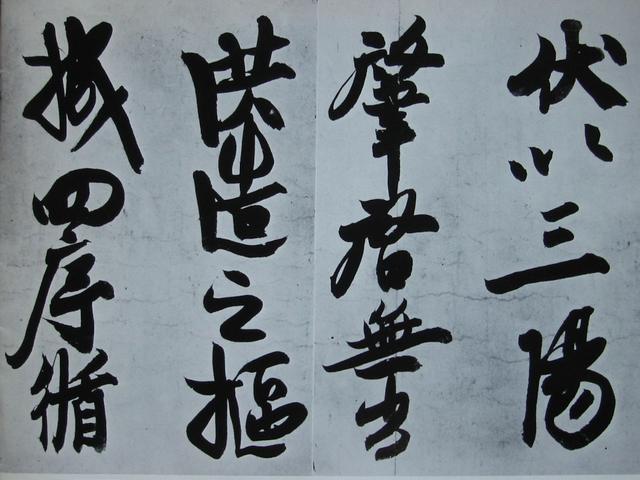 伏以三陽
肇啓無出
洪造之樞
機四序循